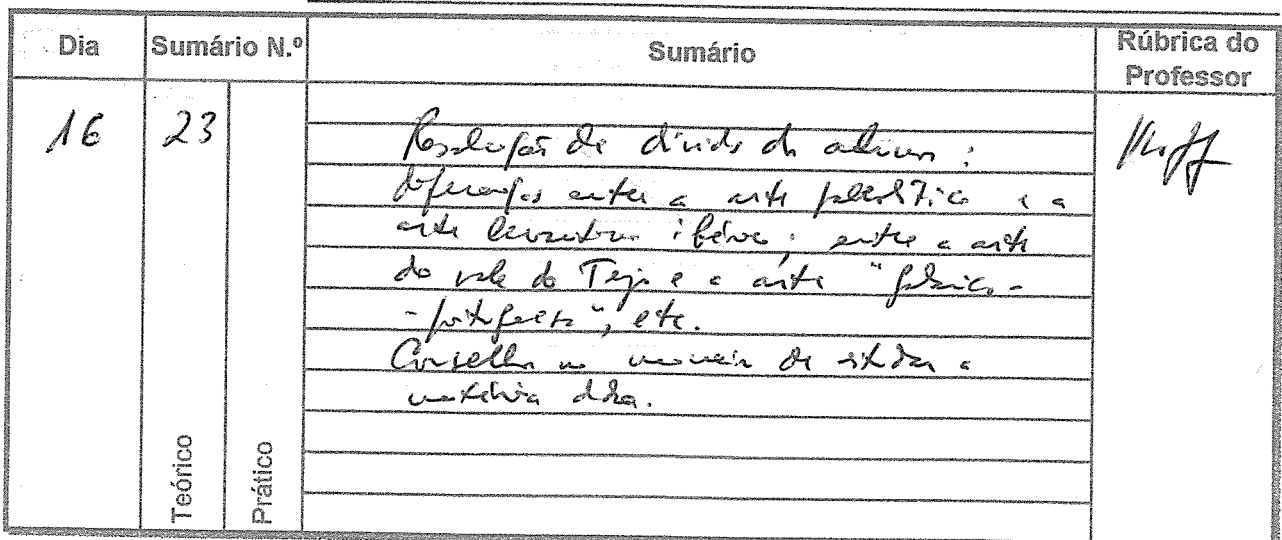 Dia
Sumário N.º
Sumário
Rúbrica do
Professor
16
23
Resolução de dúvidas de alunos:
diferenças entre a arte paleolítica e a
arte levantina ibérica; entre a arte
do vale do Tejo e a arte "galaico-
-portuguesa", etc.
Conselhos na maneira de estudar a
matéria dada.
Teórico
Prático